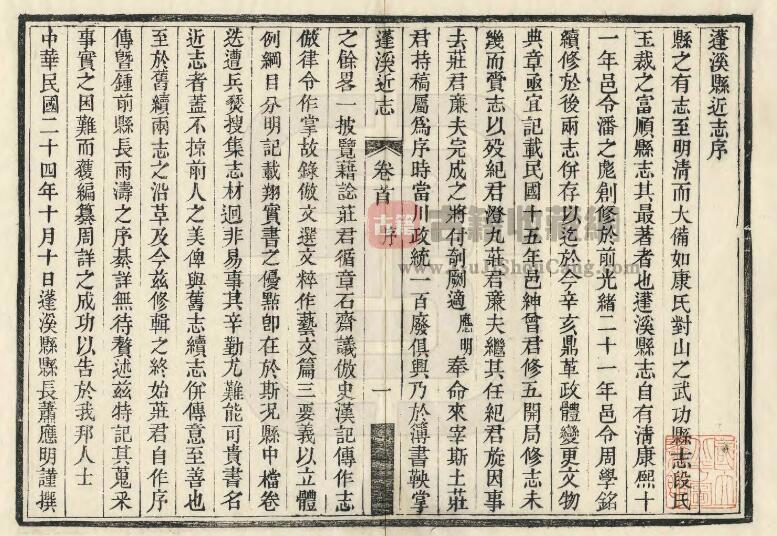 蓬溪縣近志序
縣之有志至明淸而大備如康氏對山之武功縣志段氏
玉裁之富順縣志其最著者也蓬溪縣志自有淸康熙十
一年邑令潘之彪創修於前光緒二十一年邑令周學銘
續修於後兩志併存以迄於今辛亥鼎革政體變更文物
典章亟宜記載民國十五年邑紳曾君修五開局修志未
幾而賫志以歿紀君澄九莊君亷夫繼其任紀君旋因事
去莊君亷夫完成之將付剞劂適應明奉命來宰斯土莊
君持稿屬爲序時當川政統一百廢俱興乃於簿書鞅掌
蓬溪近志
卷首
序
一
之餘畧一披覽藉諗莊君循章石齋議倣史漢記傳作志
倣律令作掌故錄倣文選文粹作藝文篇三要義以立體
例綱目分明記載翔實書之優點卽在於斯况縣中檔卷
迭遭兵燹搜集志材迴非易事其辛勤尤難能可貴書名
近志者蓋不掠前人之美俾與舊志續志併傳意至善也
至於舊續兩志之沿革及今兹修輯之終始莊君自作序
傳曁鍾前縣長雨濤之序綦詳無待贅述兹特記其蒐采
事實之因難而獲編纂周詳之成功以告於我邦人士
中華民國二十四年十月十日蓬溪縣縣長蕭應明謹撰
古籍